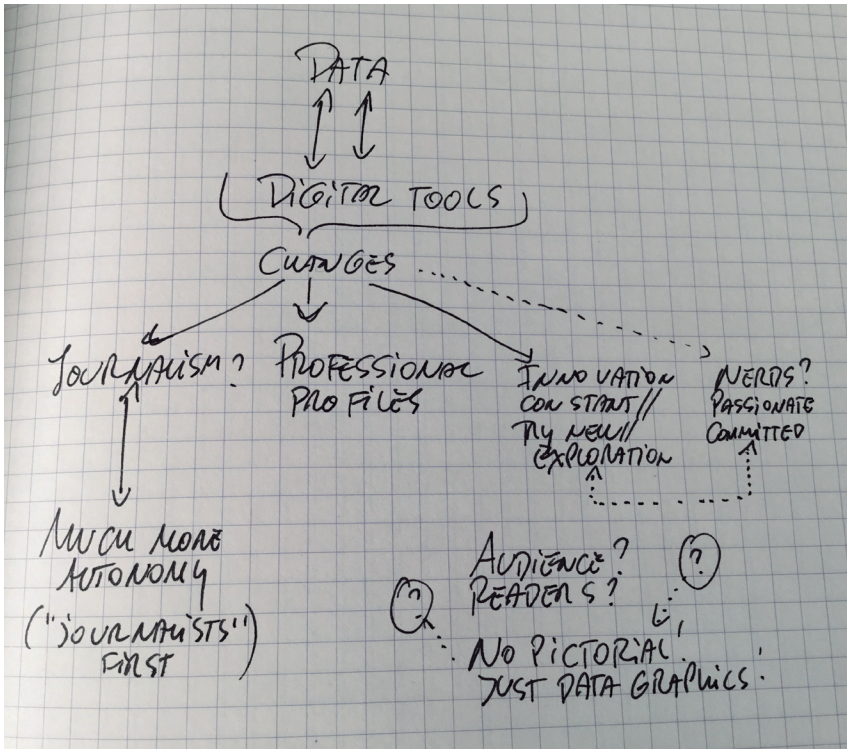 DATA
DIGITAL TOOLS
CHANGES
JOURNALISM?
PROFESSIONAL
PROFILES
INNOVATION
CONSTANT//
TRY NEW//
EXPLORATION
NERDS?
PASSIONATE
COMMITTED
MUCH MORE
AUTONOMY
("JOURNALISTS"
FIRST)
AUDIENCE?
READERS?
?
?
NO PICTORIAL!
JUST DATA GRAPHICS!